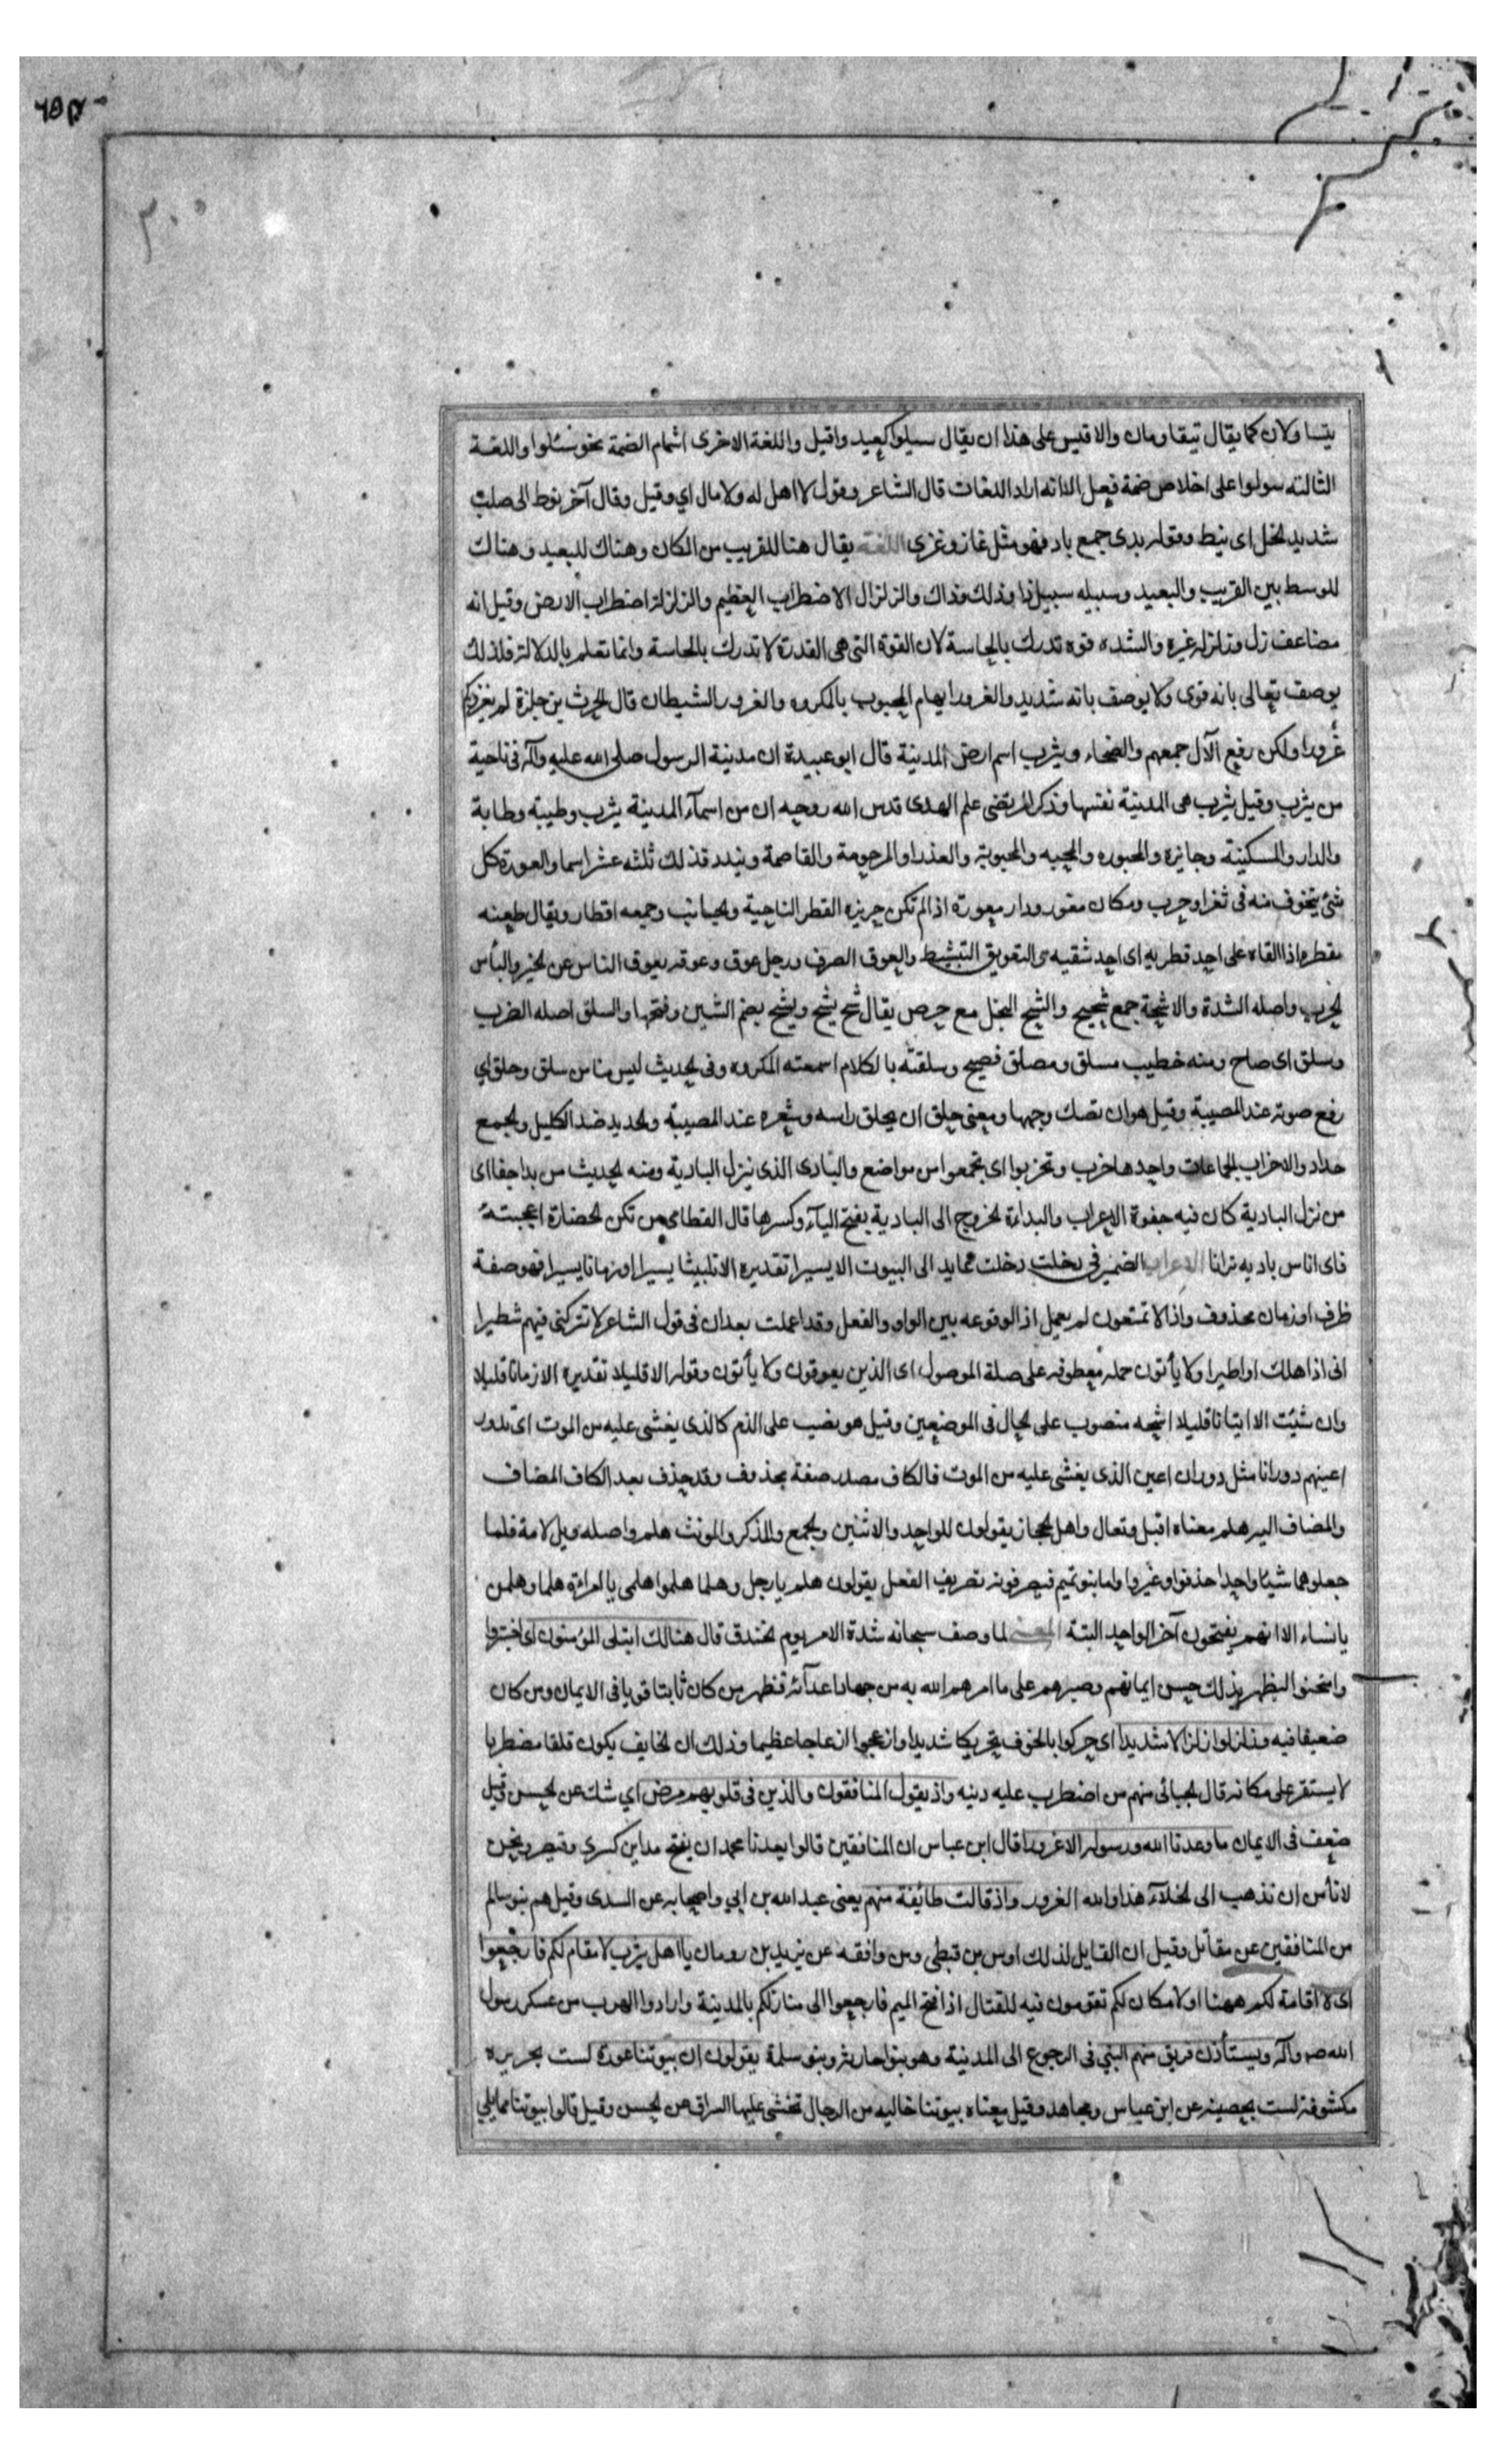 يتساولان كما يقال تيقاومان والاقيس على هذا ان يقال سيلوا كعيد واقيل واللغة الاخرى اشمام الضمة نحو سئلوا واللغة
الثالثه سولوا على اخلاص ضمة فعل الا انه اراد اللغات قال الشاعر وقول لا اهل له ولا مال اي وقيل وقال آخر نوط الى صلب
شديد الخل اى نيط وقوله بدى جمع باد فهو مثل غاز وغزى اللغة يقال هنا للقريب من المكان وهناك للبعيد وهنالك
للوسط بين القريب والبعيد وسبيله سبيل ذا وذلك وذاك والزلزال الاضطراب العظيم والزلزلة اضطراب الارض وقيل انه
مضاعف زل وزلزله غيره والشده قوه تدرك بالحاسة لان القوة التى هى القدرة لا تدرك بالحاسة وانما تعلم بالدلالة فلذلك
يوصف تعالى بانه قوى ولا يوصف بانه شديد والغرور ايهام المحبوب بالمكروه والغرور الشيطان قال الحرث بن حلزة لم يغزوكم
غرورا ولكن رفع الآل جمعهم والضحاء ويثرب اسم ارض المدينة قال ابو عبيدة ان مدينة الرسول صلى الله عليه وآله فى ناحية
من يثرب وقيل يثرب هى المدينة نفسها وذكر المرتضى علم الهدى قدس الله روحه ان من اسمآء المدينة يثرب وطيبه وطابة
والدار والسكينة وجايزه والمحبوره والمحبه والمحبوبة والعذرا والمرحومة والقاصمة ويندد فذلك ثلثه عشر اسما والعورة كل
شئ يتخوف منه فى ثغر او حرب ومكان معور ودار معورة اذا لم تكن حريزه القطر الناحية والجانب وجمعه اقطار ويقال طعنه
فقطره اذا القاه على احد قطريه اى احد شقيه التعويق التثبيط والعوق الصرف ورجل عوق وعوقه يعوق الناس عن الخير والبأس
الحرب واصله الشدة والاشحة جمع شحيح والشح البخل مع حرص يقال شح يشح ويشح بضم الشين وفتحها والسلق اصله الضرب
وسلق اى صاح ومنه خطيب مسلق ومصلق فصيح وسلقته بالكلام اسمعته المكروه وفى الحديث ليس منا من سلق وحلق اي
رفع صوته عند المصيبة وقيل هو ان تصك وجهها ومعنى حلق ان يحلق راسه وشعره عند المصيبة والحديد ضد الكليل والجمع
حداد والاحزاب الجماعات واحدها حزب وتحزبوا اى تجمعوا من مواضع والبادى الذى ينزل البادية ومنه الحديث من بدا جفا اى
من نزل البادية كان فيه جفوة الاعراب والبداءة الخروج الى البادية بفتح البآء وكسرها قال القطامى من تكن الحضارة اعجبته
فاى اناس باديه ترانا الاعراب الضمير فى دخلت دخلت عمايد الى البيوت الا يسيرا تقديره الا تلبيثا يسيرا او زمانا يسيرا فهو صفة
ظرف او زمان محذوف واذا لا تمتعون لم يعمل اذا لوقوعه بين الواو والفعل وقد اعملت بعد ان فى قول الشاعر لا تتركنى فيهم شطيرا
انى اذا اهلك او اطيرا ولا يأتون جمله معطوفه على صلة الموصول اى الذين يعوقون ولا يأتون وقوله الا قليلا تقديره الا زمانا قليلا
وان شئت الا ايتانا قليلا اشحه منصوب على الحال فى الموضعين وقيل هو نصب على الذم كالذى يغشى عليه من الموت اى تدور
اعينهم دورانا مثل دوران اعين الذى يغشى عليه من الموت فالكاف مصدر صفة محذوف وقد حذف بعد الكاف المضاف
والمضاف اليه هلم معناه اقبل وتعال واهل الحجاز يقولون للواحد والاثنين والجمع والمذكر والمونث هلم واصله ويل لامة فلما
جعلوهما شيئا واحدا حذفوا وغيروا واما بنو تميم فيصرفونه تصريف الفعل يقولون هلم يا رجل وهلما هلموا هلمى يا امراءة هلما وهلمن
يا نساء الا انهم يفتحون آخر الواحد البتة المعنى لما وصف سبحانه شدة الامر يوم الخندق قال هنالك ابتلى المؤمنون اى اختبروا
وامتحنوا ليظهر بذلك حسن ايمانهم وصبرهم على ما امرهم الله به من جهاد اعدآئه فظهر من كان ثابتا قويا فى الايمان ومن كان
ضعيفا فيه وزلزلوا زلزالا شديدا اى حركوا بالخوف تحريكا شديدا وازعجوا ازعاجا عظيما وذلك ان الخايف يكون قلقا مضطربا
لا يستقر على مكانه قال الجبائى منهم من اضطرب عليه دينه واذ يقول المنافقون والذين فى قلوبهم مرض اي شك عن الحسن وقيل
ضعف فى الايمان ما وعدنا الله ورسوله الا غرورا قال ابن عباس ان المنافقين قالوا يعدنا محمد ان يفتح مداين كسرى وقيصر ونحن
لا نأمن ان نذهب الى الخلآء هذا والله الغرور واذ قالت طائفة منهم يعنى عبد الله بن ابي واصحابه عن السدى وقيل هم بنو سالم
من المنافقين عن مقاتل وقيل ان القايل لذلك اوس بن قبطى ومن وافقه عن يزيد بن رومان يا اهل يثرب لا مقام لكم فارجعوا
اى لا اقامة لكم ههنا او لا مكان لكم تقومون فيه للقتال اذا فتح الميم فارجعوا الى منازلكم بالمدينة وارادوا الهرب من عسكر رسول
الله صم وآله ويستأذن فريق منهم النبي فى الرجوع الى المدينة وهو بنو حارثه وبنو سلمة يقولون ان بيوتنا عورة لست بحريزه
مكشوفة لست بحصينه عن ابن عباس ومجاهد وقيل معناه بيوتنا خاليه من الرجال نخشى عليها السراق عن الحسن وقيل قالوا بيوتنا مما يلي